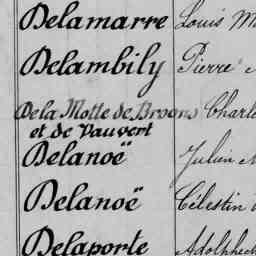 Delamarre Louis M
Delambily Pierre
De la Motte de Broons Charle
et de Vauvert
Delanoë Julien
Delanoë Célestin
Delaporte Adolphe